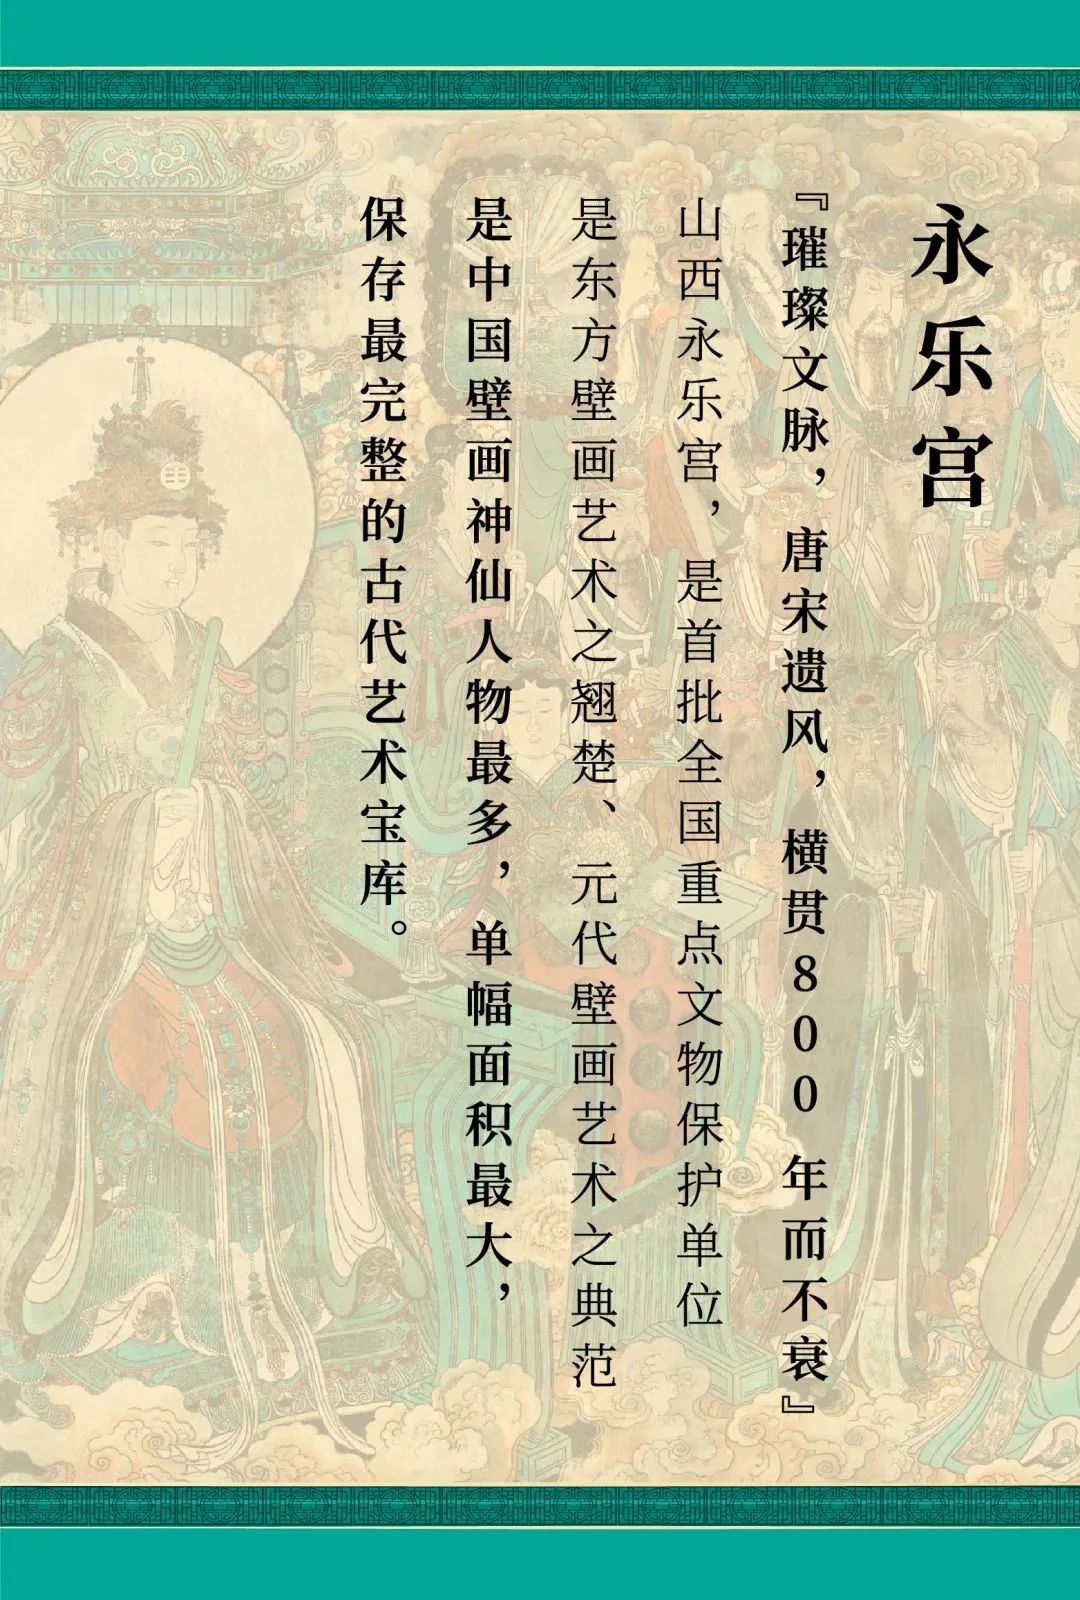 永乐宫
『璀璨文脉，唐宋遗风，横贯800年而不衰』
山西永乐宫，是首批全国重点文物保护单位
是东方壁画艺术之翘楚、元代壁画艺术之典范
是中国壁画神仙人物最多，单幅面积最大，
保存最完整的古代艺术宝库。